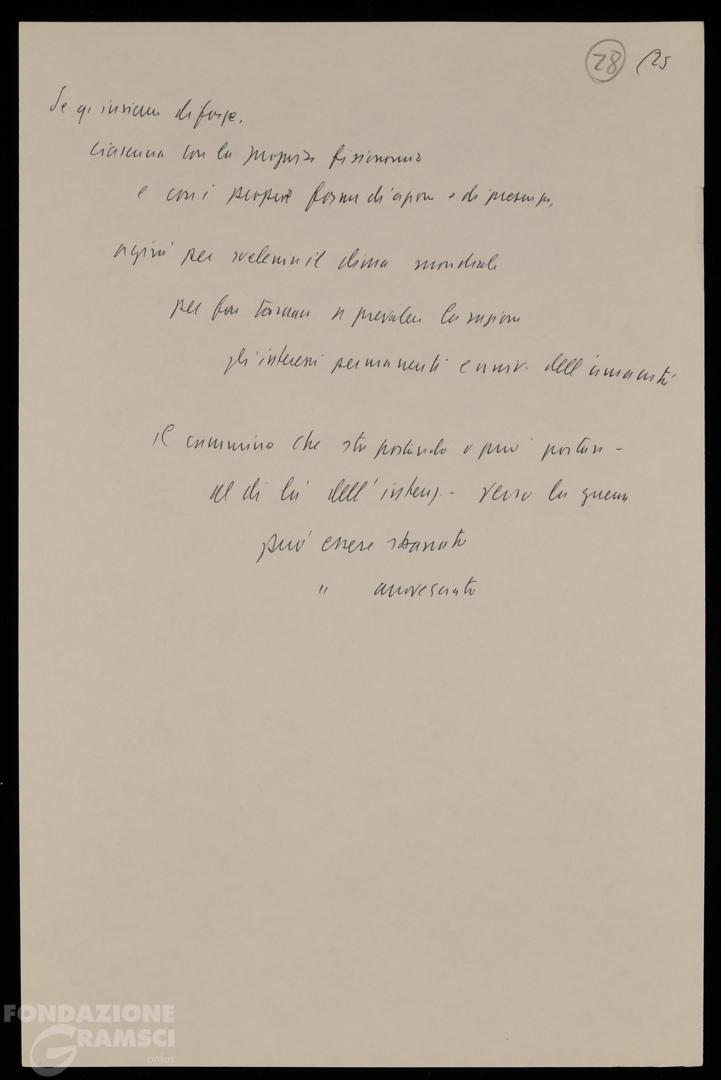 28 125
Se q. insieme di forze,
ciascuna con la propria fisionomia
e con i propri forme di azione e di presenza,
agirà per svelenire il clima mondiale
per far tornare a prevalere la ragione
gli interessi permanenti e univ. dell'umanità
Il cammino che sta portando o può portare -
al di là dell'intenz. - verso la guerra
può essere sbarrato
" arrovesciato
FONDAZIONE
GRAMSCI
onlus